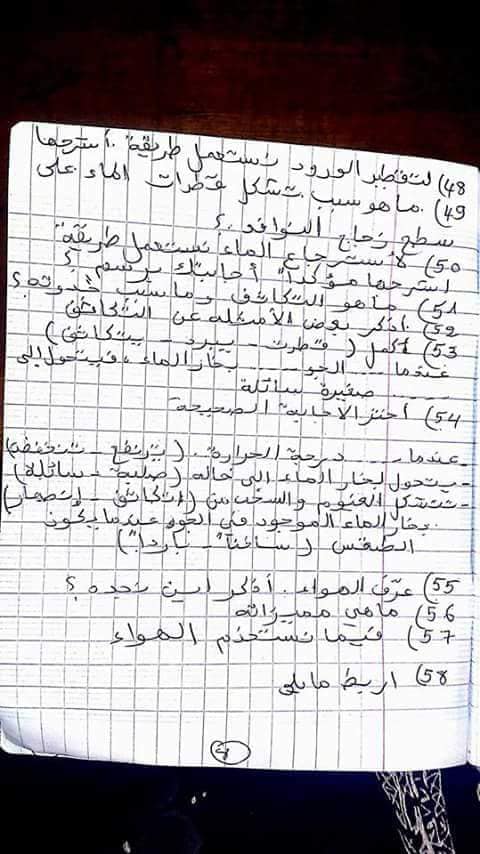 48) لتقطير الورود نستعمل طريقة. أشرحها
49) ما هو سبب تشكل قطرات الماء على
سطح زجاج النوافذ. ؟
50) لأسترجاع الماء نستعمل طريقة
اشرحها مؤكدا" أجابتك برسم ؟
51) ما هو التكاثف وما سبب حدوثه ؟
52) أذكر بعض الأمثلة عن التكاثق
53) أكمل ( قطرت - يبرد - يتكاثق )
عندما .... الجو .... بخار الماء، فيتحول إلى
.... صغيرة سائلة
54) أختر الاجابة الصحيحة
- عندما .... درجة الحرارة. ( ترتفع - تنخفظ )
- يتحول لبخار الماء الى حالة ( صلبة - سائلة )
- تتشكل الغيوم والسحب من ( إتكاثق - إنصهار )
بخار الماء الموجود في الجو عندما يكون
الطقس ( ساخنا" - باردا" )
55) عرف الهواء. أذكر أين نجده ؟
56) ماهي مميزاته
57) فيما نستخدم الهواء
58) اربط مايلي